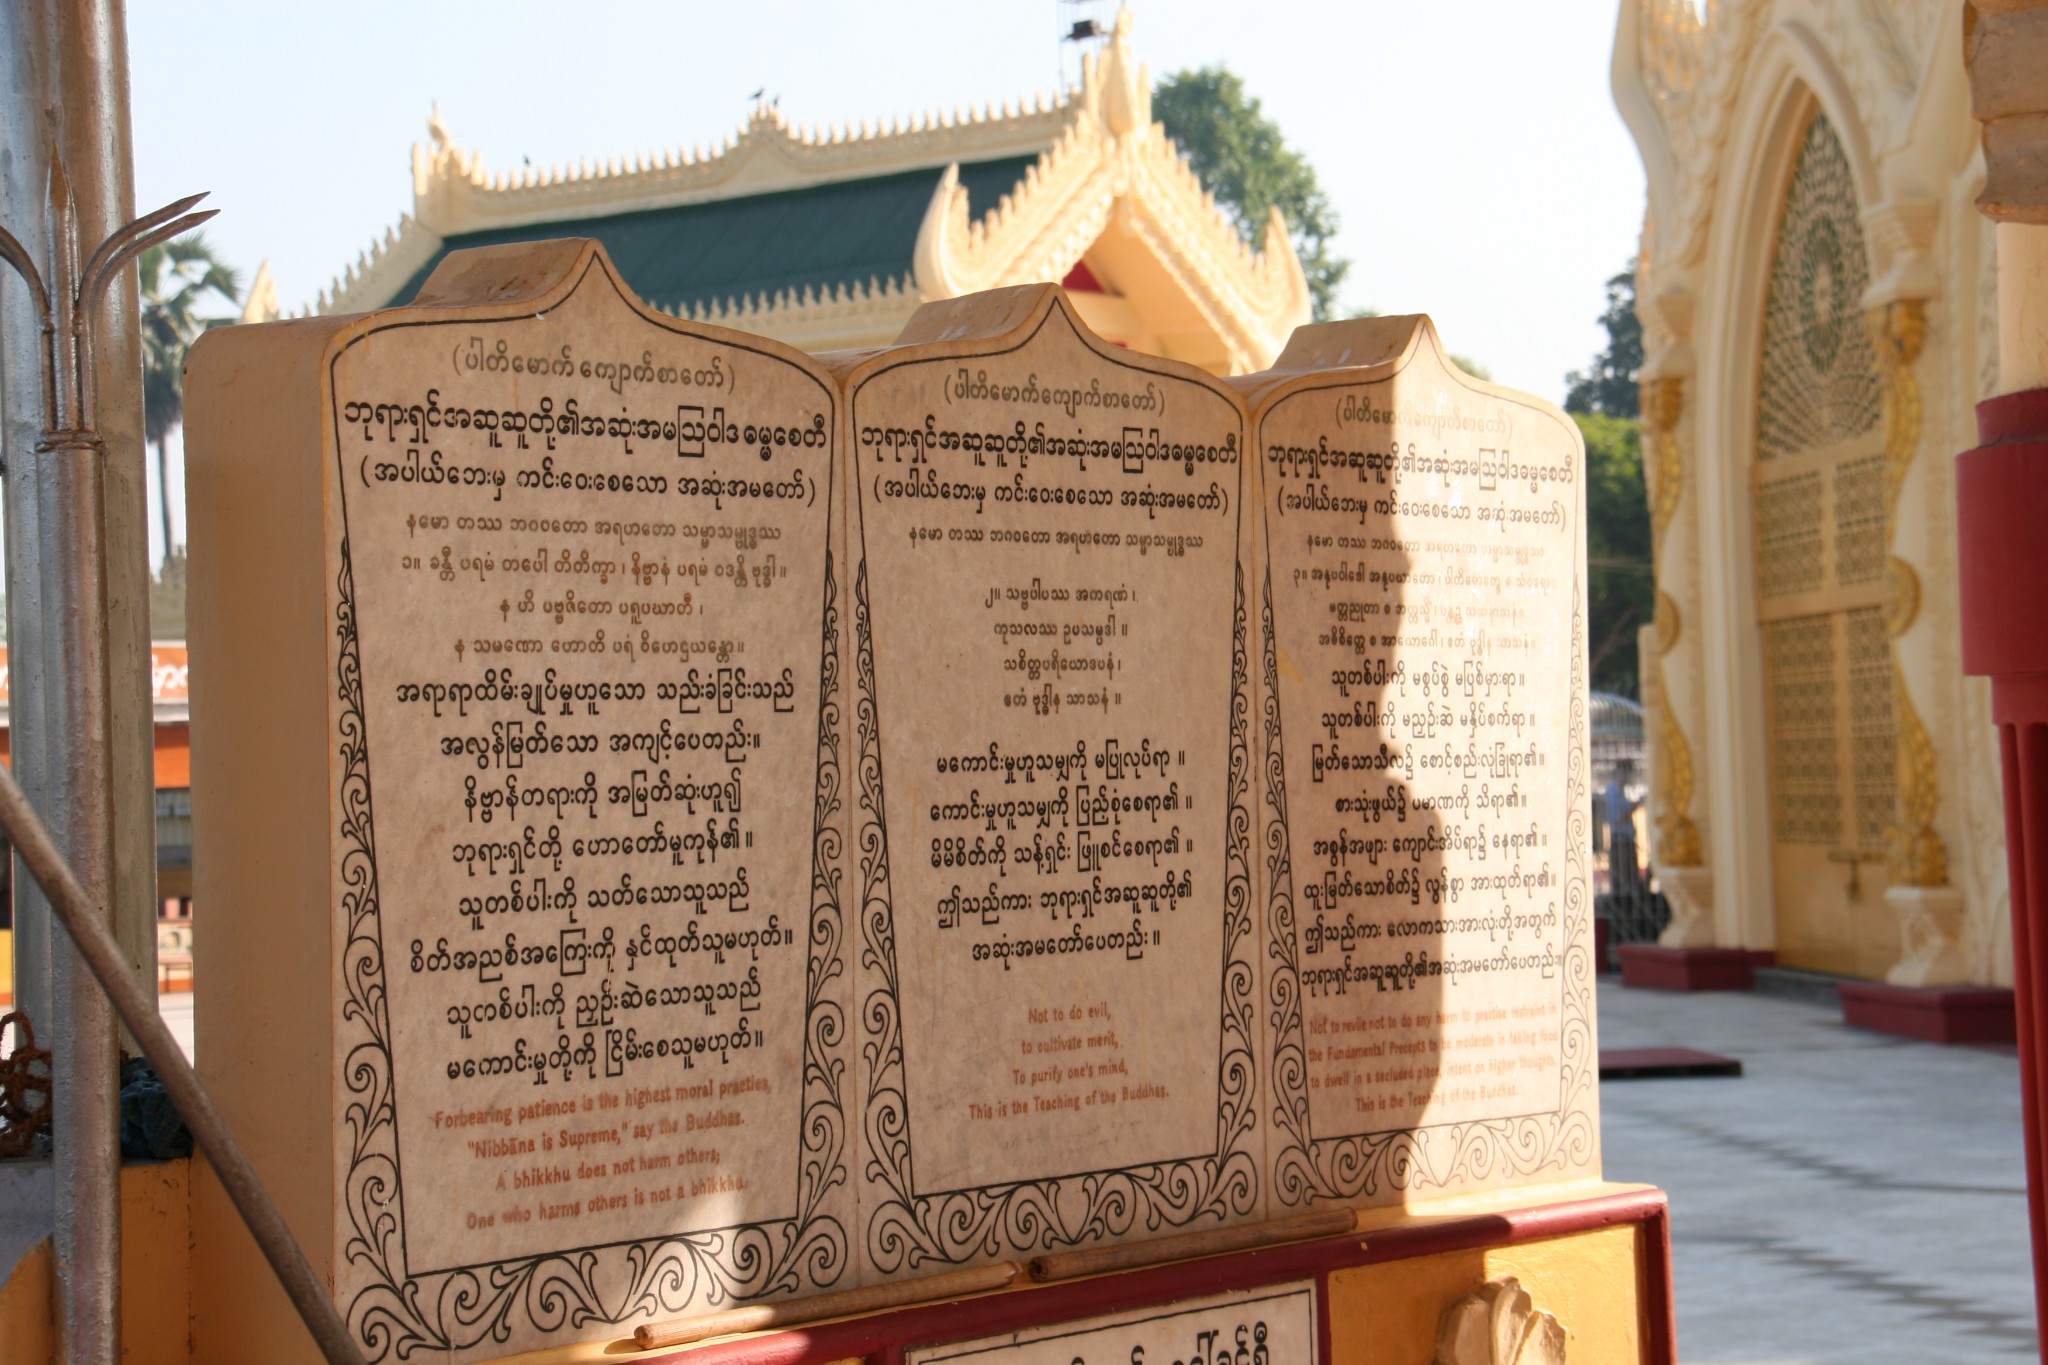 (ပါတိမောက် ကျောက်စာတော်)
ဘုရားရှင်အဆူဆူတို့၏အဆုံးအမဩဝါဒဓမ္မစေတီ
(အပါယ်ဘေးမှ ကင်းဝေးစေသော အဆုံးအမတော်)
နမော တဿ ဘဂဝတော အရဟတော သမ္မာသမ္ဗုဒ္ဓဿ
၁။ ခန္တီ ပရမံ တပေါ တိတိက္ခာ၊ နိဗ္ဗာနံ ပရမံ ဝဒန္တိ ဗုဒ္ဓါ။
န ဟိ ပဗ္ဗဇိတော ပရူပဃာတီ၊
န သမဏော ဟောတိ ပရံ ဝိဟေဌယန္တော။
အရာရာထိမ်းချုပ်မှုဟူသော သည်းခံခြင်းသည်
အလွန်မြတ်သော အကျင့်ပေတည်း။
နိဗ္ဗာန်တရားကို အမြတ်ဆုံးဟူ၍
ဘုရားရှင်တို့ ဟောတော်မူကုန်၏။
သူတစ်ပါးကို သတ်သောသူသည်
စိတ်အညစ်အကြေးကို နှင်ထုတ်သူမဟုတ်။
သူတစ်ပါးကို ညှဉ်းဆဲသောသူသည်
မကောင်းမှုတို့ကို ငြိမ်းစေသူမဟုတ်။
Forbearing patience is the highest moral practice,
"Nibbāna is Supreme," say the Buddhas.
A bhikkhu does not harm others;
One who harms others is not a bhikkhu.
(ပါတိမောက်ကျောက်စာတော်)
ဘုရားရှင်အဆူဆူတို့၏အဆုံးအမဩဝါဒဓမ္မစေတီ
(အပါယ်ဘေးမှ ကင်းဝေးစေသော အဆုံးအမတော်)
နမော တဿ ဘဂဝတော အရဟတော သမ္မာသမ္ဗုဒ္ဓဿ
၂။ သဗ္ဗပါပဿ အကရဏံ၊
ကုသလဿ ဥပသမ္ပဒါ ။
သစိတ္တပရိယောဒပနံ၊
ဧတံ ဗုဒ္ဓါန သာသနံ ။
မကောင်းမှုဟူသမျှကို မပြုလုပ်ရာ ။
ကောင်းမှုဟူသမျှကို ပြည့်စုံစေရာ၏ ။
မိမိစိတ်ကို သန့်ရှင်း ဖြူစင်စေရာ၏ ။
ဤသည်ကား ဘုရားရှင်အဆူဆူတို့၏
အဆုံးအမတော်ပေတည်း ။
Not to do evil,
to cultivate merit,
To purify one's mind,
This is the Teaching of the Buddhas.
(ပါတိမောက်ကျောက်စာတော်)
ဘုရားရှင်အဆူဆူတို့၏အဆုံးအမဩဝါဒဓမ္မစေတီ
(အပါယ်ဘေးမှ ကင်းဝေးစေသော အဆုံးအမတော်)
နမော တဿ ဘဂဝတော အရဟတော သမ္မာသမ္ဗုဒ္ဓဿ
၃။ အနုပဝါဒေါ အနုပဃာတော၊ ပါတိမောက္ခေ စ သံဝရော။
မတ္တညုတာ စ ဘတ္တသ္မိံ၊ ပန္တဉ္စ သယနာသနံ။
အဓိစိတ္တေ စ အာယောဂေါ၊ ဧတံ ဗုဒ္ဓါန သာသနံ။
သူတစ်ပါးကို မစွပ်စွဲ မပြစ်မှားရာ။
သူတစ်ပါးကို မညှဉ်းဆဲ မနှိပ်စက်ရာ။
မြတ်သောသီလ၌ စောင့်စည်းလုံခြုံရာ၏။
စားသုံးဖွယ်၌ ပမာဏကို သိရာ၏။
အစွန်အဖျား ကျောင်းအိပ်ရာ၌ နေရာ၏။
ထူးမြတ်သောစိတ်၌ လွန်စွာ အားထုတ်ရာ၏။
ဤသည်ကား လောကသားအားလုံးတို့အတွက်
ဘုရားရှင်အဆူဆူတို့၏အဆုံးအမတော်ပေတည်း။
Not to revile not to do any harm to practise restraint in
the Fundamental Precepts to be moderate in taking food
to dwell in a secluded place, intent on higher thoughts,
This is the Teaching of the Buddhas.